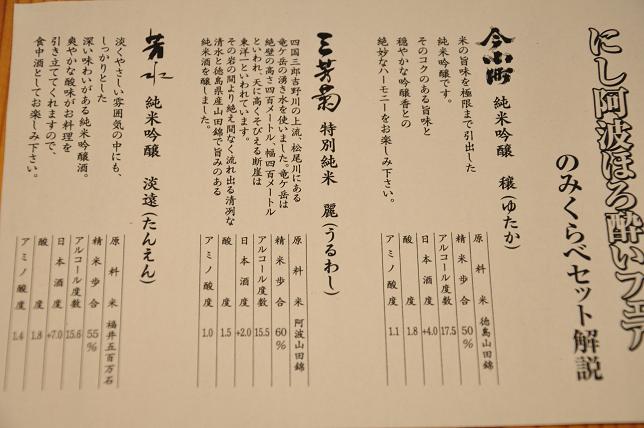 にし阿波ほろ酔いフェア
のみくらべセット解説
今小町 純米吟醸 穣(ゆたか)
米の旨味を極限まで引出した
純米吟醸です。
そのコクのある旨味と
穏やかな吟醸香との
絶妙なハーモニーをお楽しみ下さい。
原料米 徳島山田錦
精米歩合 50%
アルコール度数 17.5
日本酒度 +4.0
酸度 1.8
アミノ酸度 1.1
三芳菊 特別純米 麗(うるわし)
四国三郎吉野川の上流、松尾川にある
竜ケ岳の湧き水を使いました。竜ケ岳は
絶壁の高さ四百メートル、幅四百メートル
といわれ、天に高くそびえる断崖は
東洋一といわれています。
その岩の間より絶え間なく流れ出る清冽な
清水と徳島県産山田錦で旨みのある
純米酒を醸しました。
原料米 阿波山田錦
精米歩合 60%
アルコール度数 15.5
日本酒度 +2.0
酸度 1.5
アミノ酸度 1.0
芳水 純米吟醸 淡遠(たんえん)
淡くやさしい雰囲気の中にも、
しっかりとした
深い味わいがある純米吟醸酒。
爽やかな酸味がお料理を
引き立ててくれますので、
食中酒としてお楽しみ下さい。
原料米 福井五百万石
精米歩合 55%
アルコール度数 15.6
日本酒度 +7.0
酸度 1.8
アミノ酸度 1.4